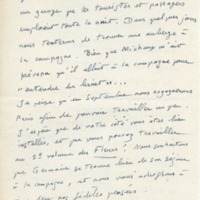 un garage par les touristes et passagers
toute la nuit. Dans quelques jours
nous tenterons de trouver une auberge à
la campagne. Bien que Michaux m'ait
prévenu qu'il allait à la campagne pour
"entendre du bruit"...
qu'en Septembre nous regagnerons
Paris afin de pouvoir travailler un peu.
J'espère que de votre côté vous êtes bien
installés, et que vous pouvez travailler
au 2e volume des Fleurs! Nous souhaitons
que Germaine se trouve bien de son séjour
à la campagne, et nous vous
nos fidèles pensées